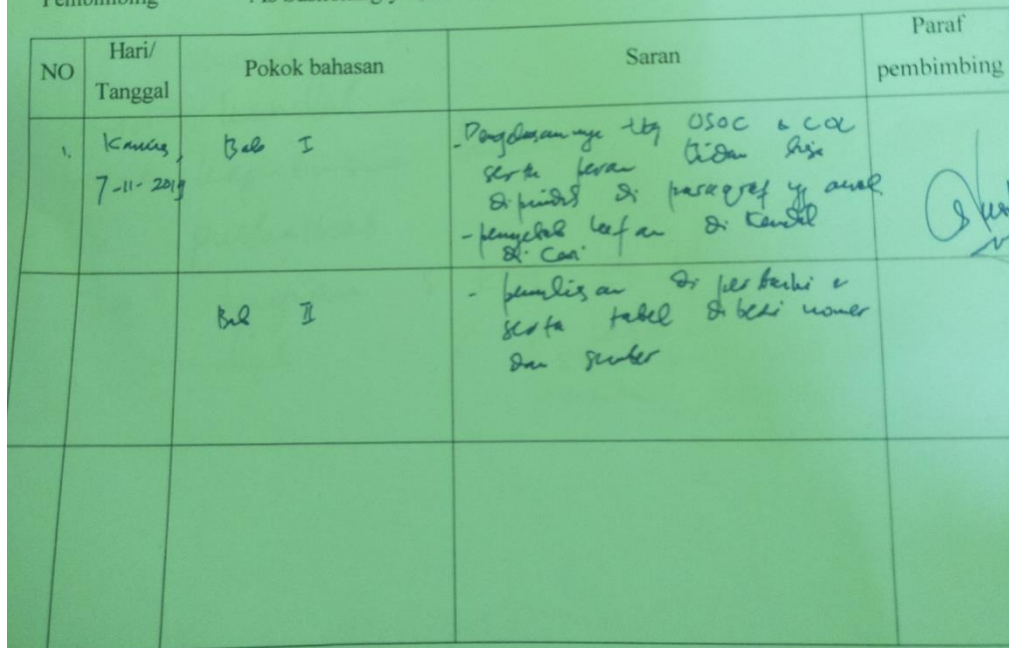 Pembimbing
NO
Hari/
Tanggal
Pokok bahasan
Saran
Paraf
pembimbing
1.
Kamis,
7-11-2019
Bab I
- Penjelasannya ttg OSOC & COC
serta peran bidan bisa
dipindah di paragraf yg awal
- penyebab di Kendal
di cari
Bab II
- penulisan di perbaiki
serta tabel diberi nomer
dan sumber